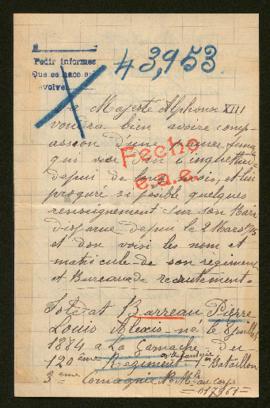 #3,953
Pedir informes
Que se hace si
vo Majesté Alphonse XIII
voudra bien avoire comp-
assion d'une
qui vie dans l'inquiétude
depuis de et lui
procuré si posible quelques
renseignement sur son Mari
disparue depuis le 2 Mars 1915
et don voisi les nom et
matricule de son régiment
et Bureau de recrutement
Fecho
e.a.s.
Soldat Barreau Pierre
Louis Alexis né le 8
1884 a La Gamache du
120ème Régiment d'infanterie Bataillon
3ème Compagnie No Mle au corps